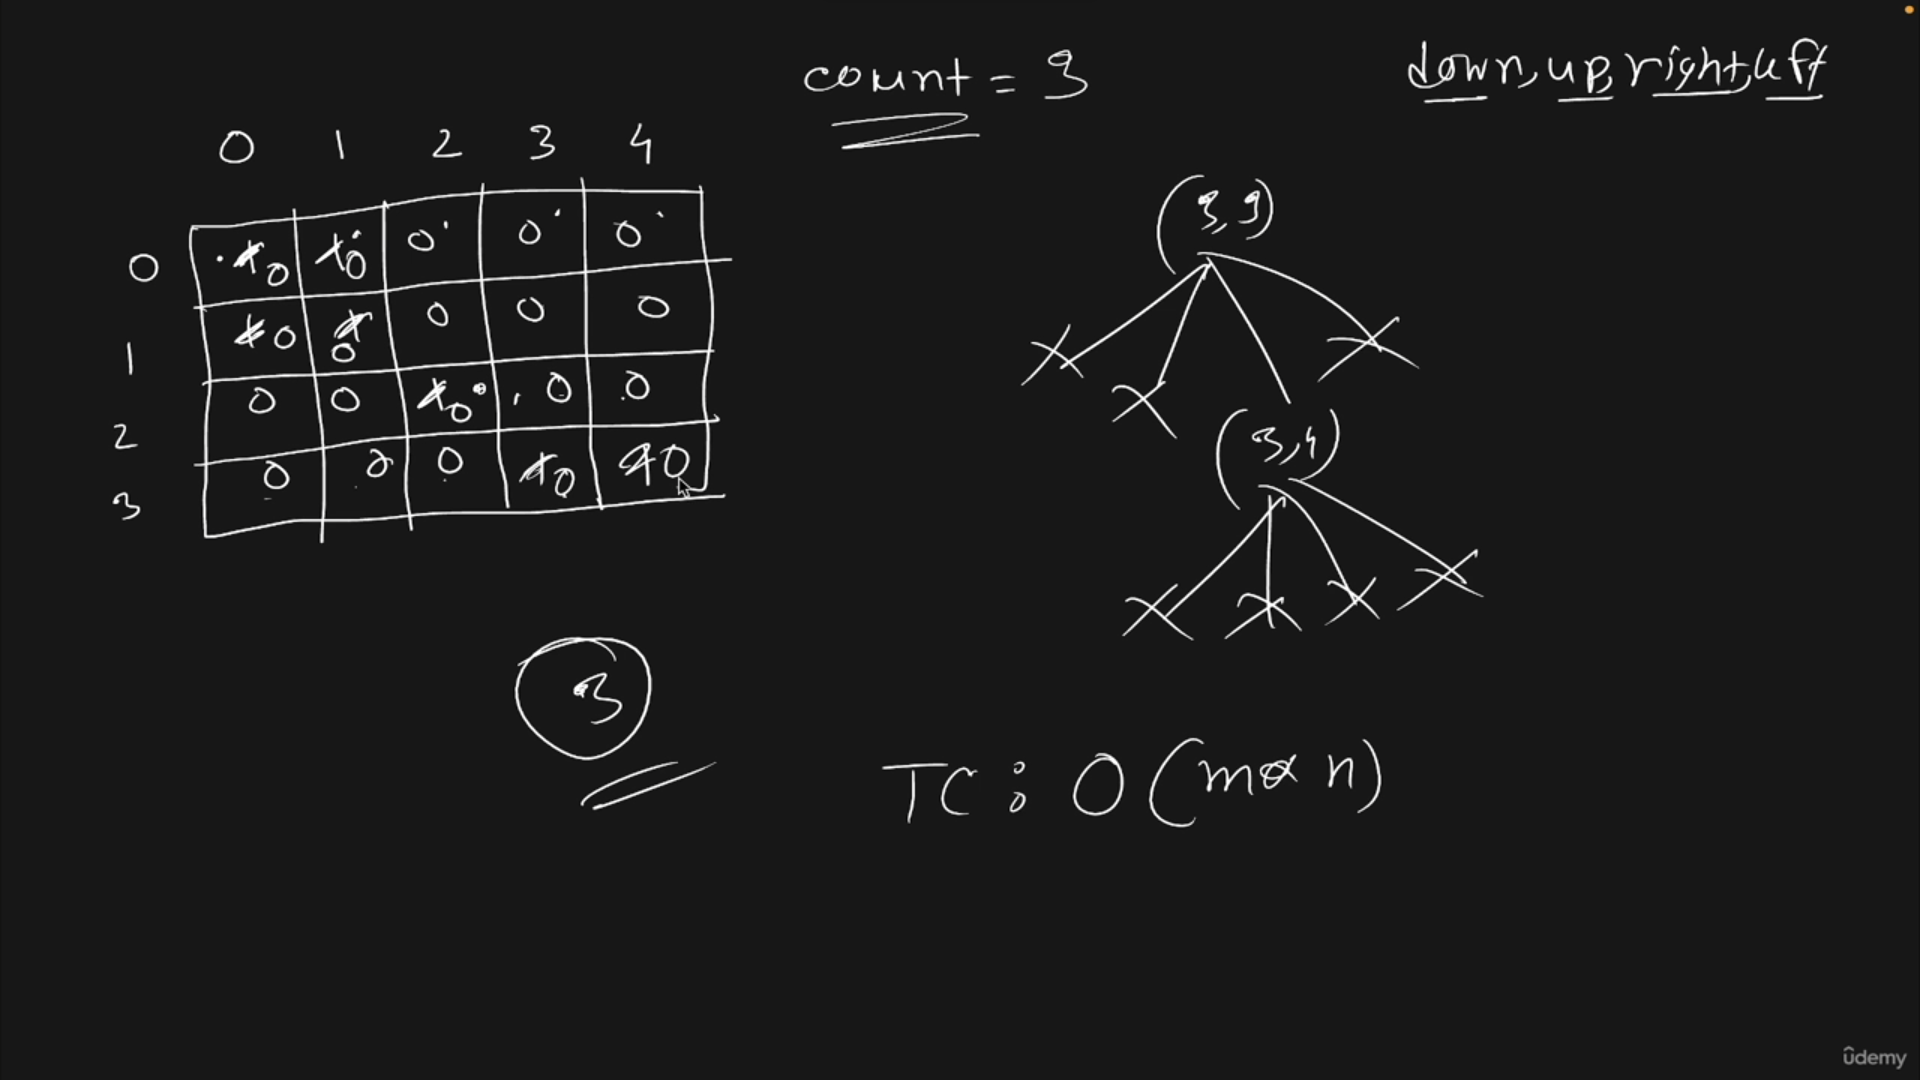 count = 3
down, up, right, left
0 1 2 3 4
0 1 0 1 0 0 0 0
1 1 0 1 0 0 0 0
2 0 0 1 0 0 0
3 0 0 0 1 0 1 0
(3,3)
(3,4)
3
TC : O (m * n)
ûdemy